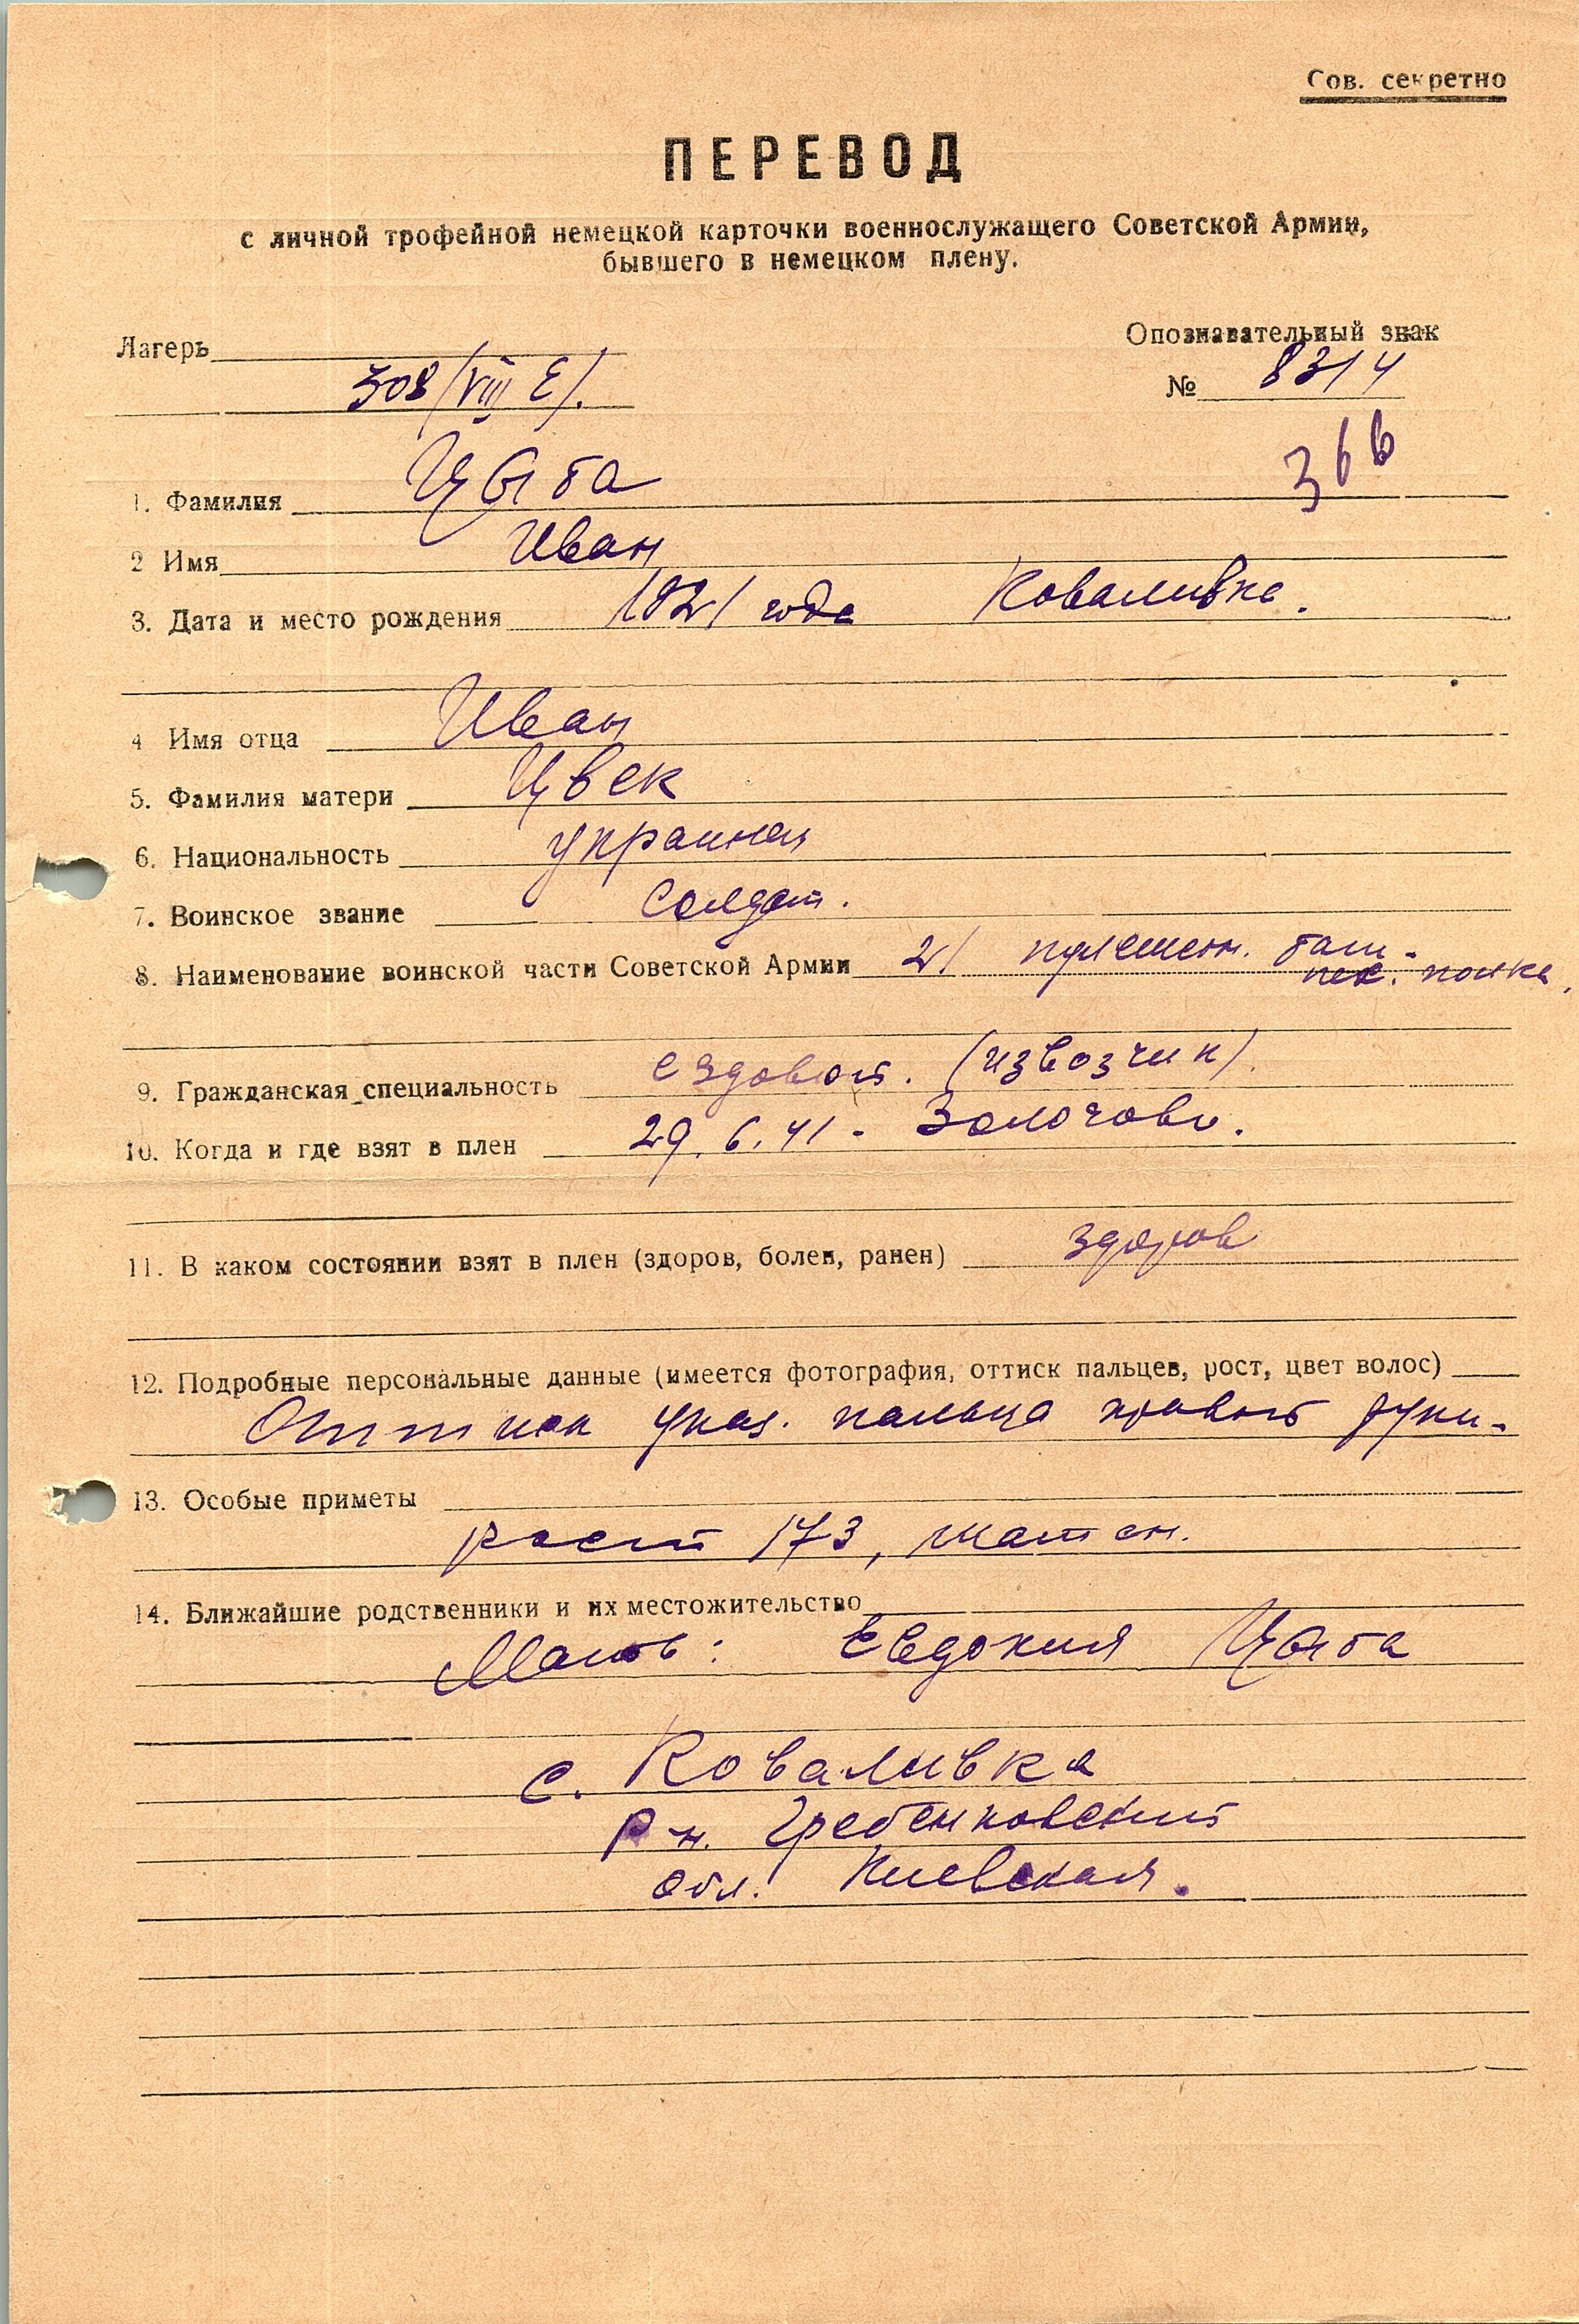 Сов. секретно
ПЕРЕВОД
с личной трофейной немецкой карточки военнослужащего Советской Армии,
бывшего в немецком плену.
Лагерь
308 (VIII E).
Опознавательный знак
№ 8314
366
1. Фамилия Цыба
2 Имя Иван
3. Дата и место рождения 1921 года Коваливка.
4 Имя отца Иван
5. Фамилия матери Цвек
6. Национальность украинец
7. Воинское звание солдат.
8. Наименование воинской части Советской Армии 21 пулеметн. бат.
пех. полка,
9. Гражданская специальность ездовой. (извозчик).
10. Когда и где взят в плен 29.6.41 - Золочов.
11. В каком состоянии взят в плен (здоров, болен, ранен) здоров
12. Подробные персональные данные (имеется фотография, оттиск пальцев, рост, цвет волос)
Оттиск указ. пальца правой руки.
13. Особые приметы
рост 173, шатен.
14. Ближайшие родственники и их местожительство
Мать: Евдокия Цыба
с. Коваливка
р-н. Гребенковский
обл. Киевская.